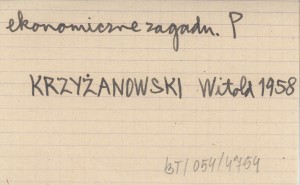 ekonomiczne zagadn. P
KRZYŻANOWSKI Witold 1958
BT/054/4754